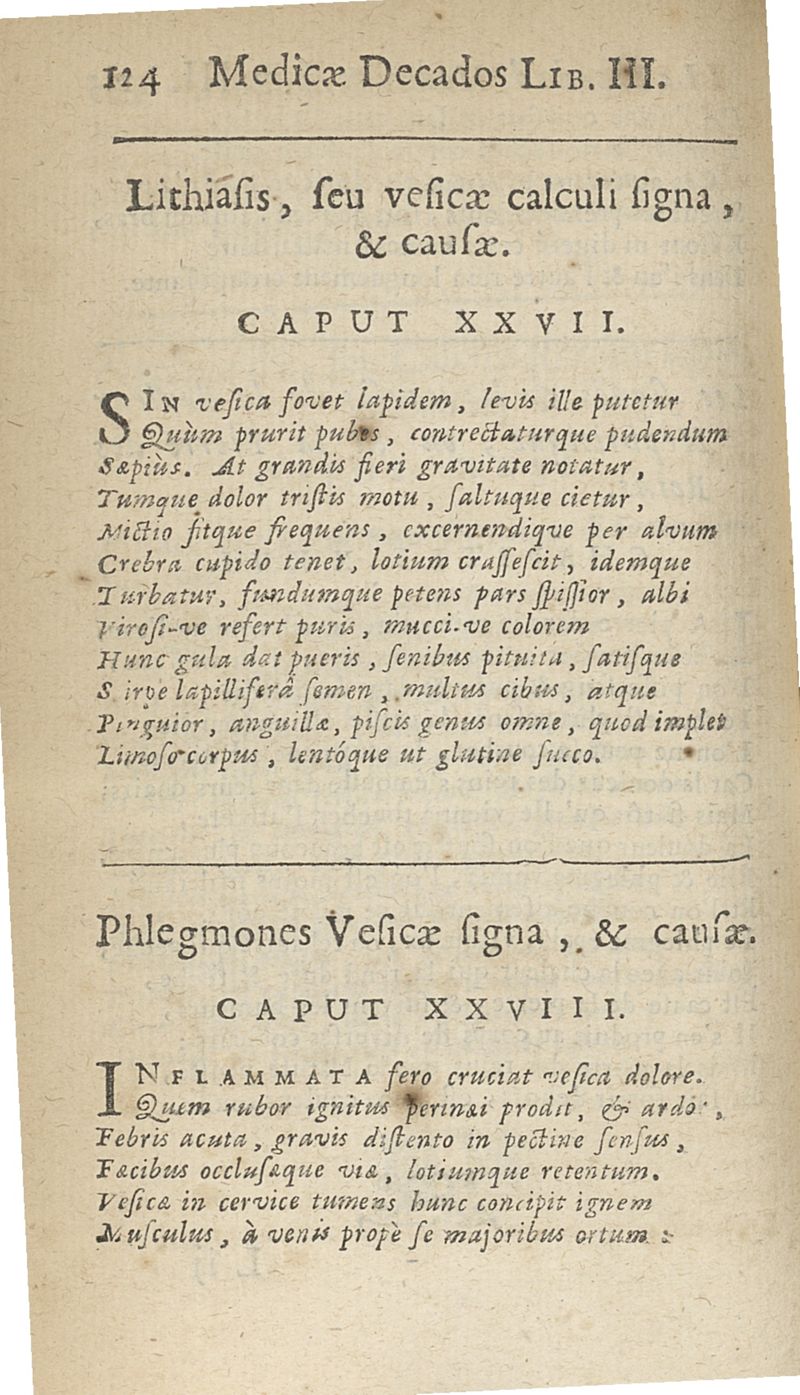 124 Medicæ Decados LIB. III.
Lithiasis, ſeu veſicæ calculi ſigna,
& cauſæ.
CAPUT XXVII.
SIN veſica fovet lapidem, levis ille putetur
Quùm prurit pubes, contrectaturque pudendum
Sæpiùs. At grandis fieri gravitate notatur,
Tumque dolor triſtis motu, ſaltuque cietur,
Mictio fitque frequens, excernendique per alvum
Crebra cupido tenet, lotium craſſeſcit, idemque
Turbatur, fundumque petens pars ſpiſſior, albi
Viroſi-ve refert puris, mucci-ve colorem
Hunc gula dat pueris, ſenibus pituita, ſatiſque
Stirpe lapilliferâ ſemen, multus cibus, atque
Pinguior, anguillæ, piſcis genus omne, quod implet
Limoſo corpus, lentóque ut glutine ſucco.
Phlegmones Veſicæ ſigna, & cauſæ.
CAPUT XXVIII.
INFLAMMATA fero cruciat veſica dolore.
Quem rubor ignitus perinæi prodit, & ardor,
Febris acuta, gravis diſtento in pectine ſenſus,
Fæcibus occluſæque viæ, lotiumque retentum.
Veſicæ in cervice tumens hunc concipit ignem
Muſculus, à venis propè ſe majoribus ortum: